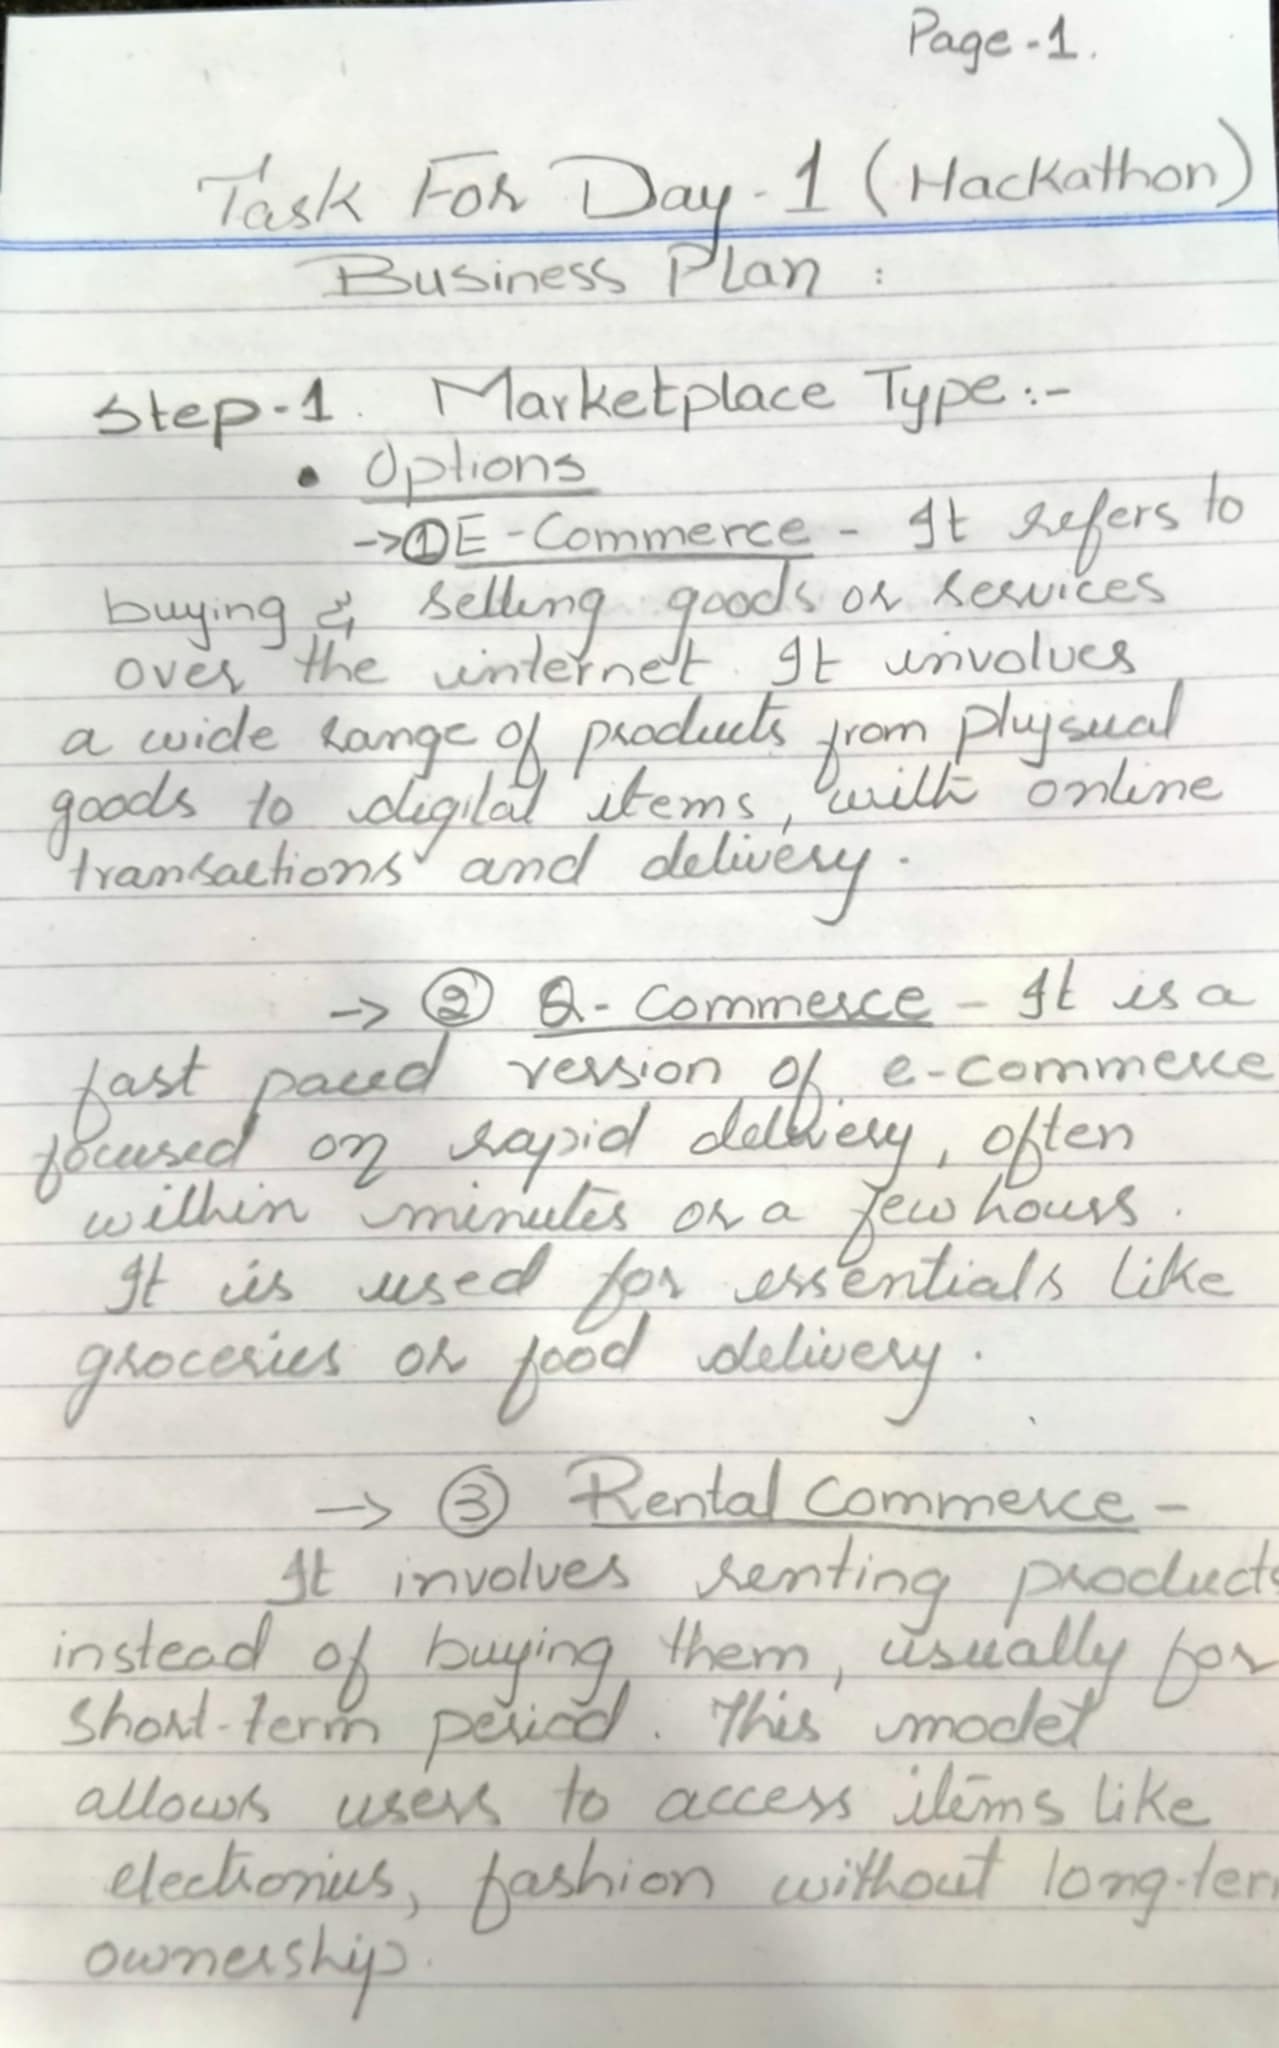 Page-1.
Task For Day-1 (Hackathon)
Business Plan :
Step-1. Marketplace Type:-
• Options
->① E-Commerce - It refers to
buying & selling goods or services
over the internet. It involves
a wide range of products from physical
goods to digital items, with online
transactions and delivery.
-> ② Q-Commerce - It is a
fast paced version of e-commerce
focused on rapid delivery, often
within minutes or a few hours.
It is used for essentials like
groceries or food delivery.
-> ③ Rental Commerce -
It involves renting products
instead of buying them, usually for
short-term period. This model
allows users to access items like
electronics, fashion without long-term
ownership.